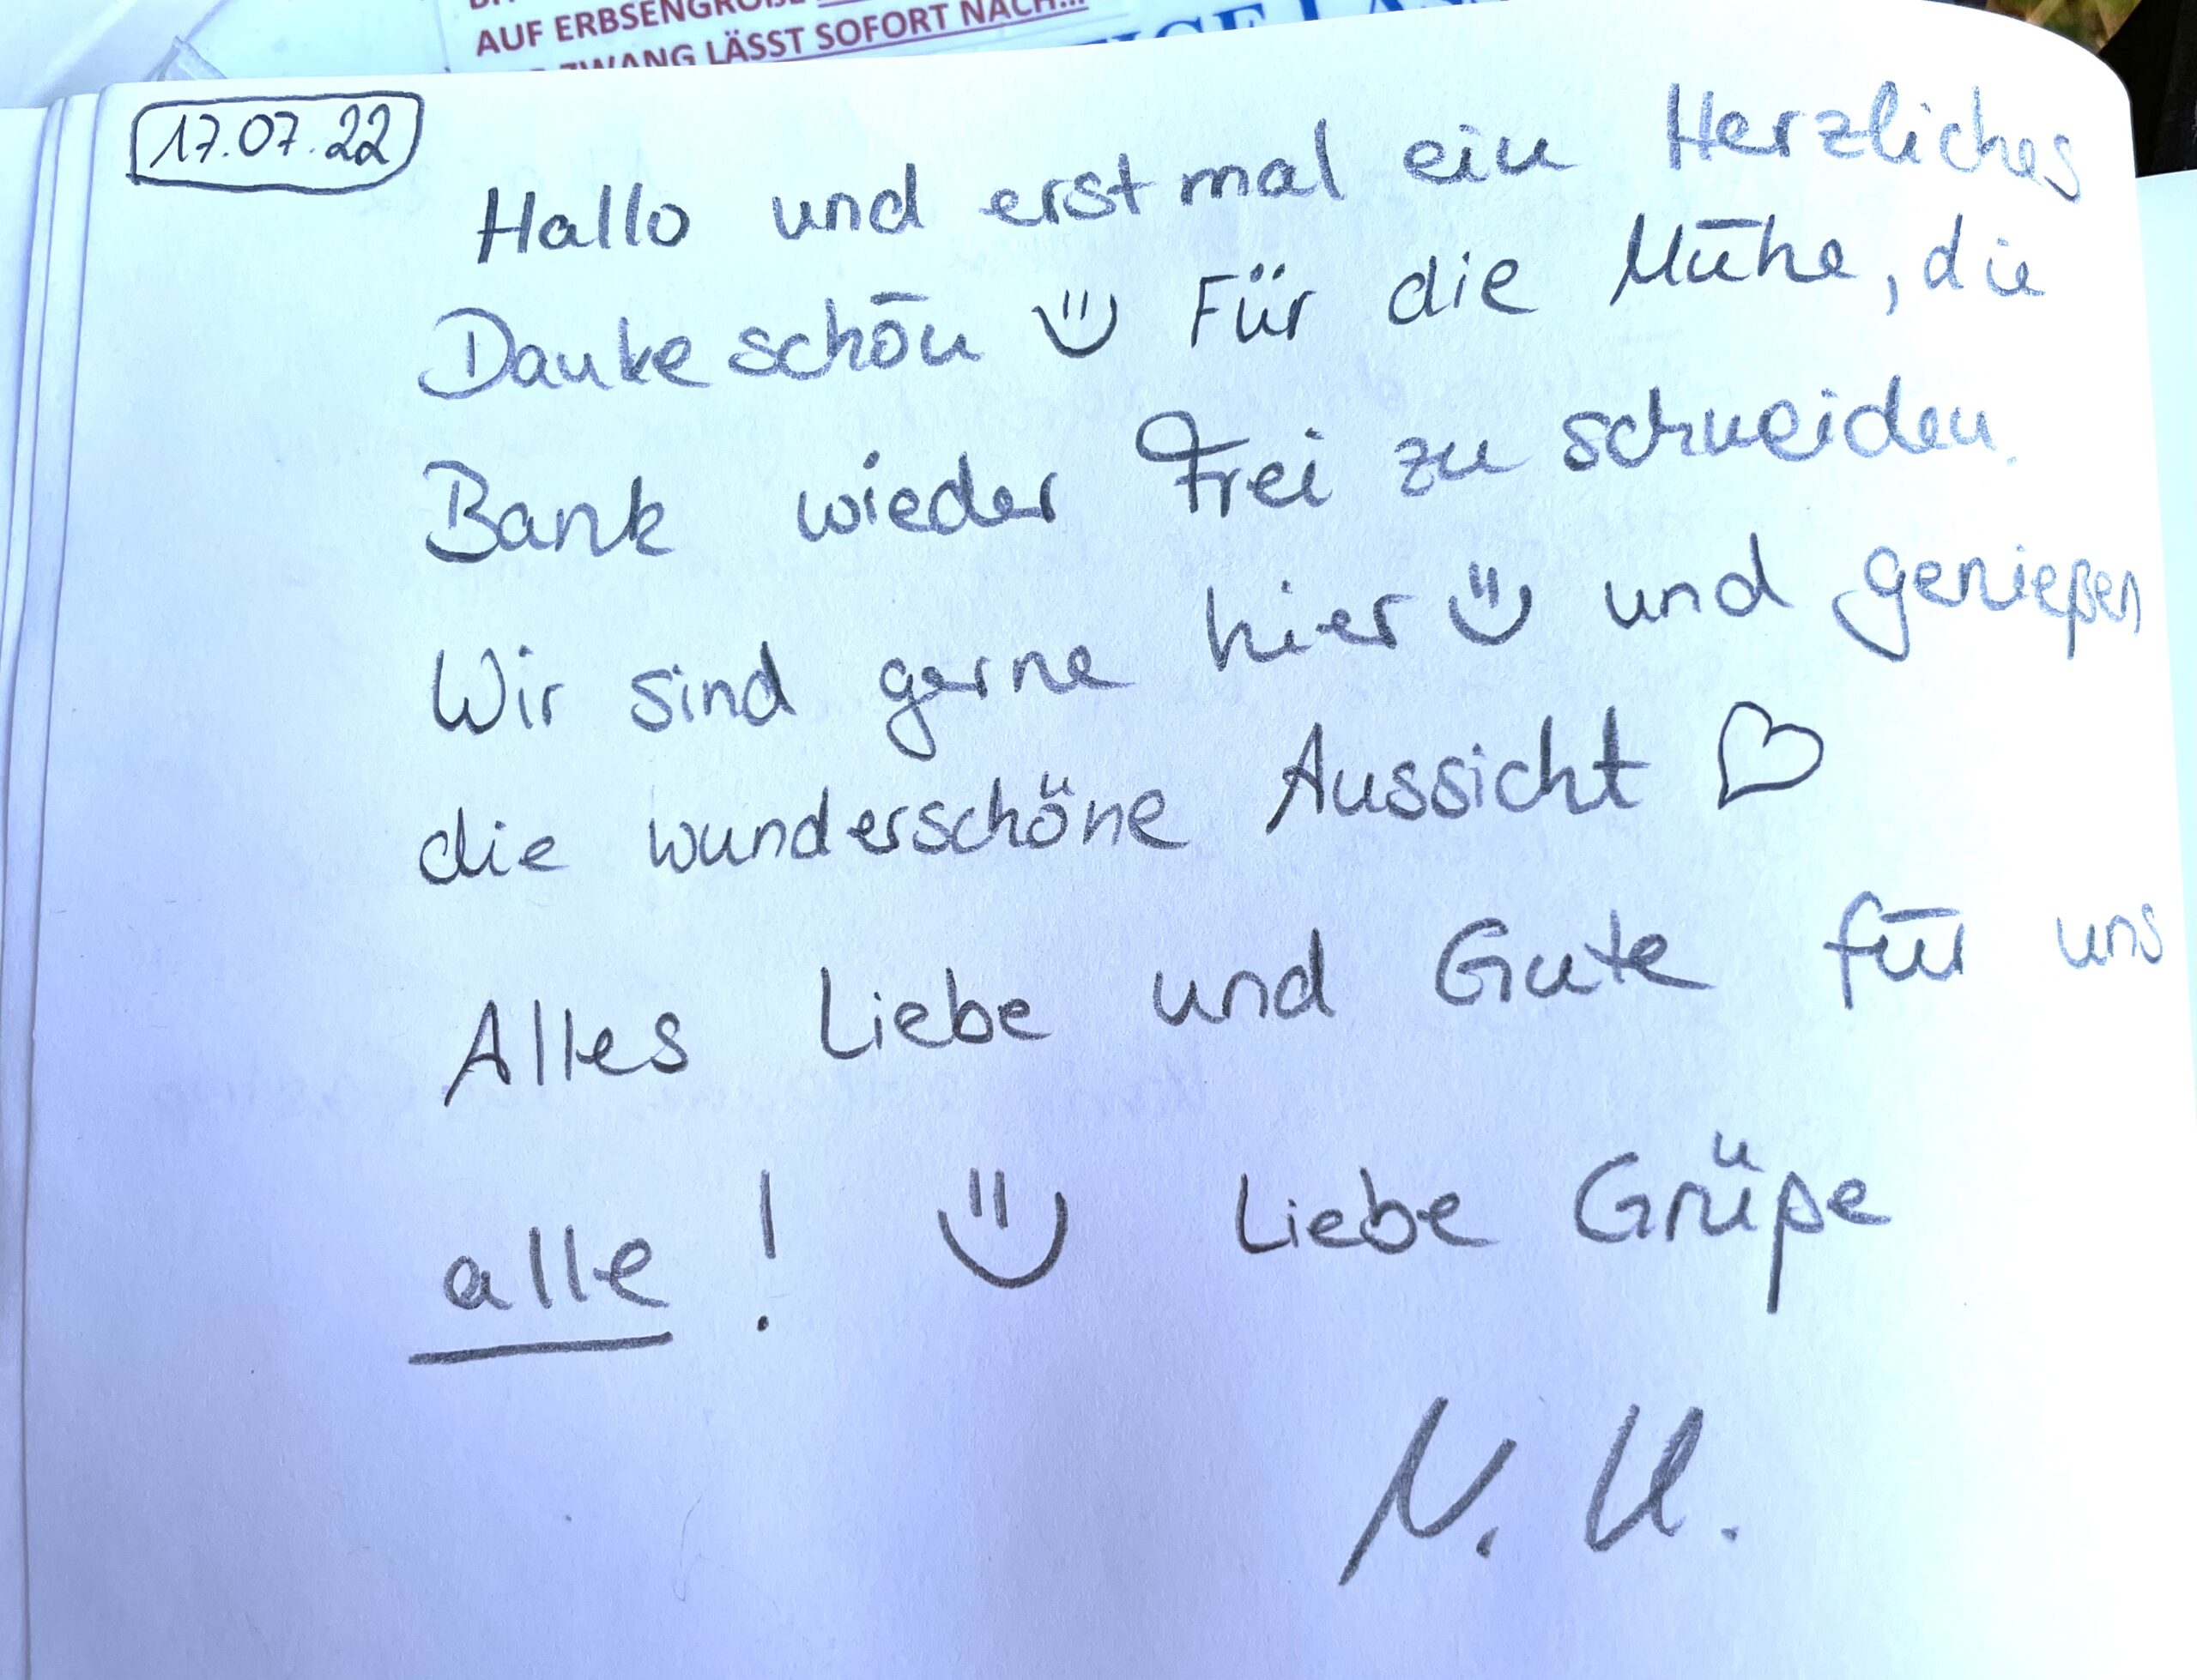 AUF ERBSENGRÖßE
ZWANG LÄSST SOFORT NACH...
17.07.22
Hallo und erstmal ein Herzliches
Dankeschön :) Für die Mühe, die
Bank wieder Frei zu schneiden.
Wir sind gerne hier :) und genießen
die wunderschöne Aussicht ♡
Alles Liebe und Gute für uns
alle! :) Liebe Grüße
N. U.